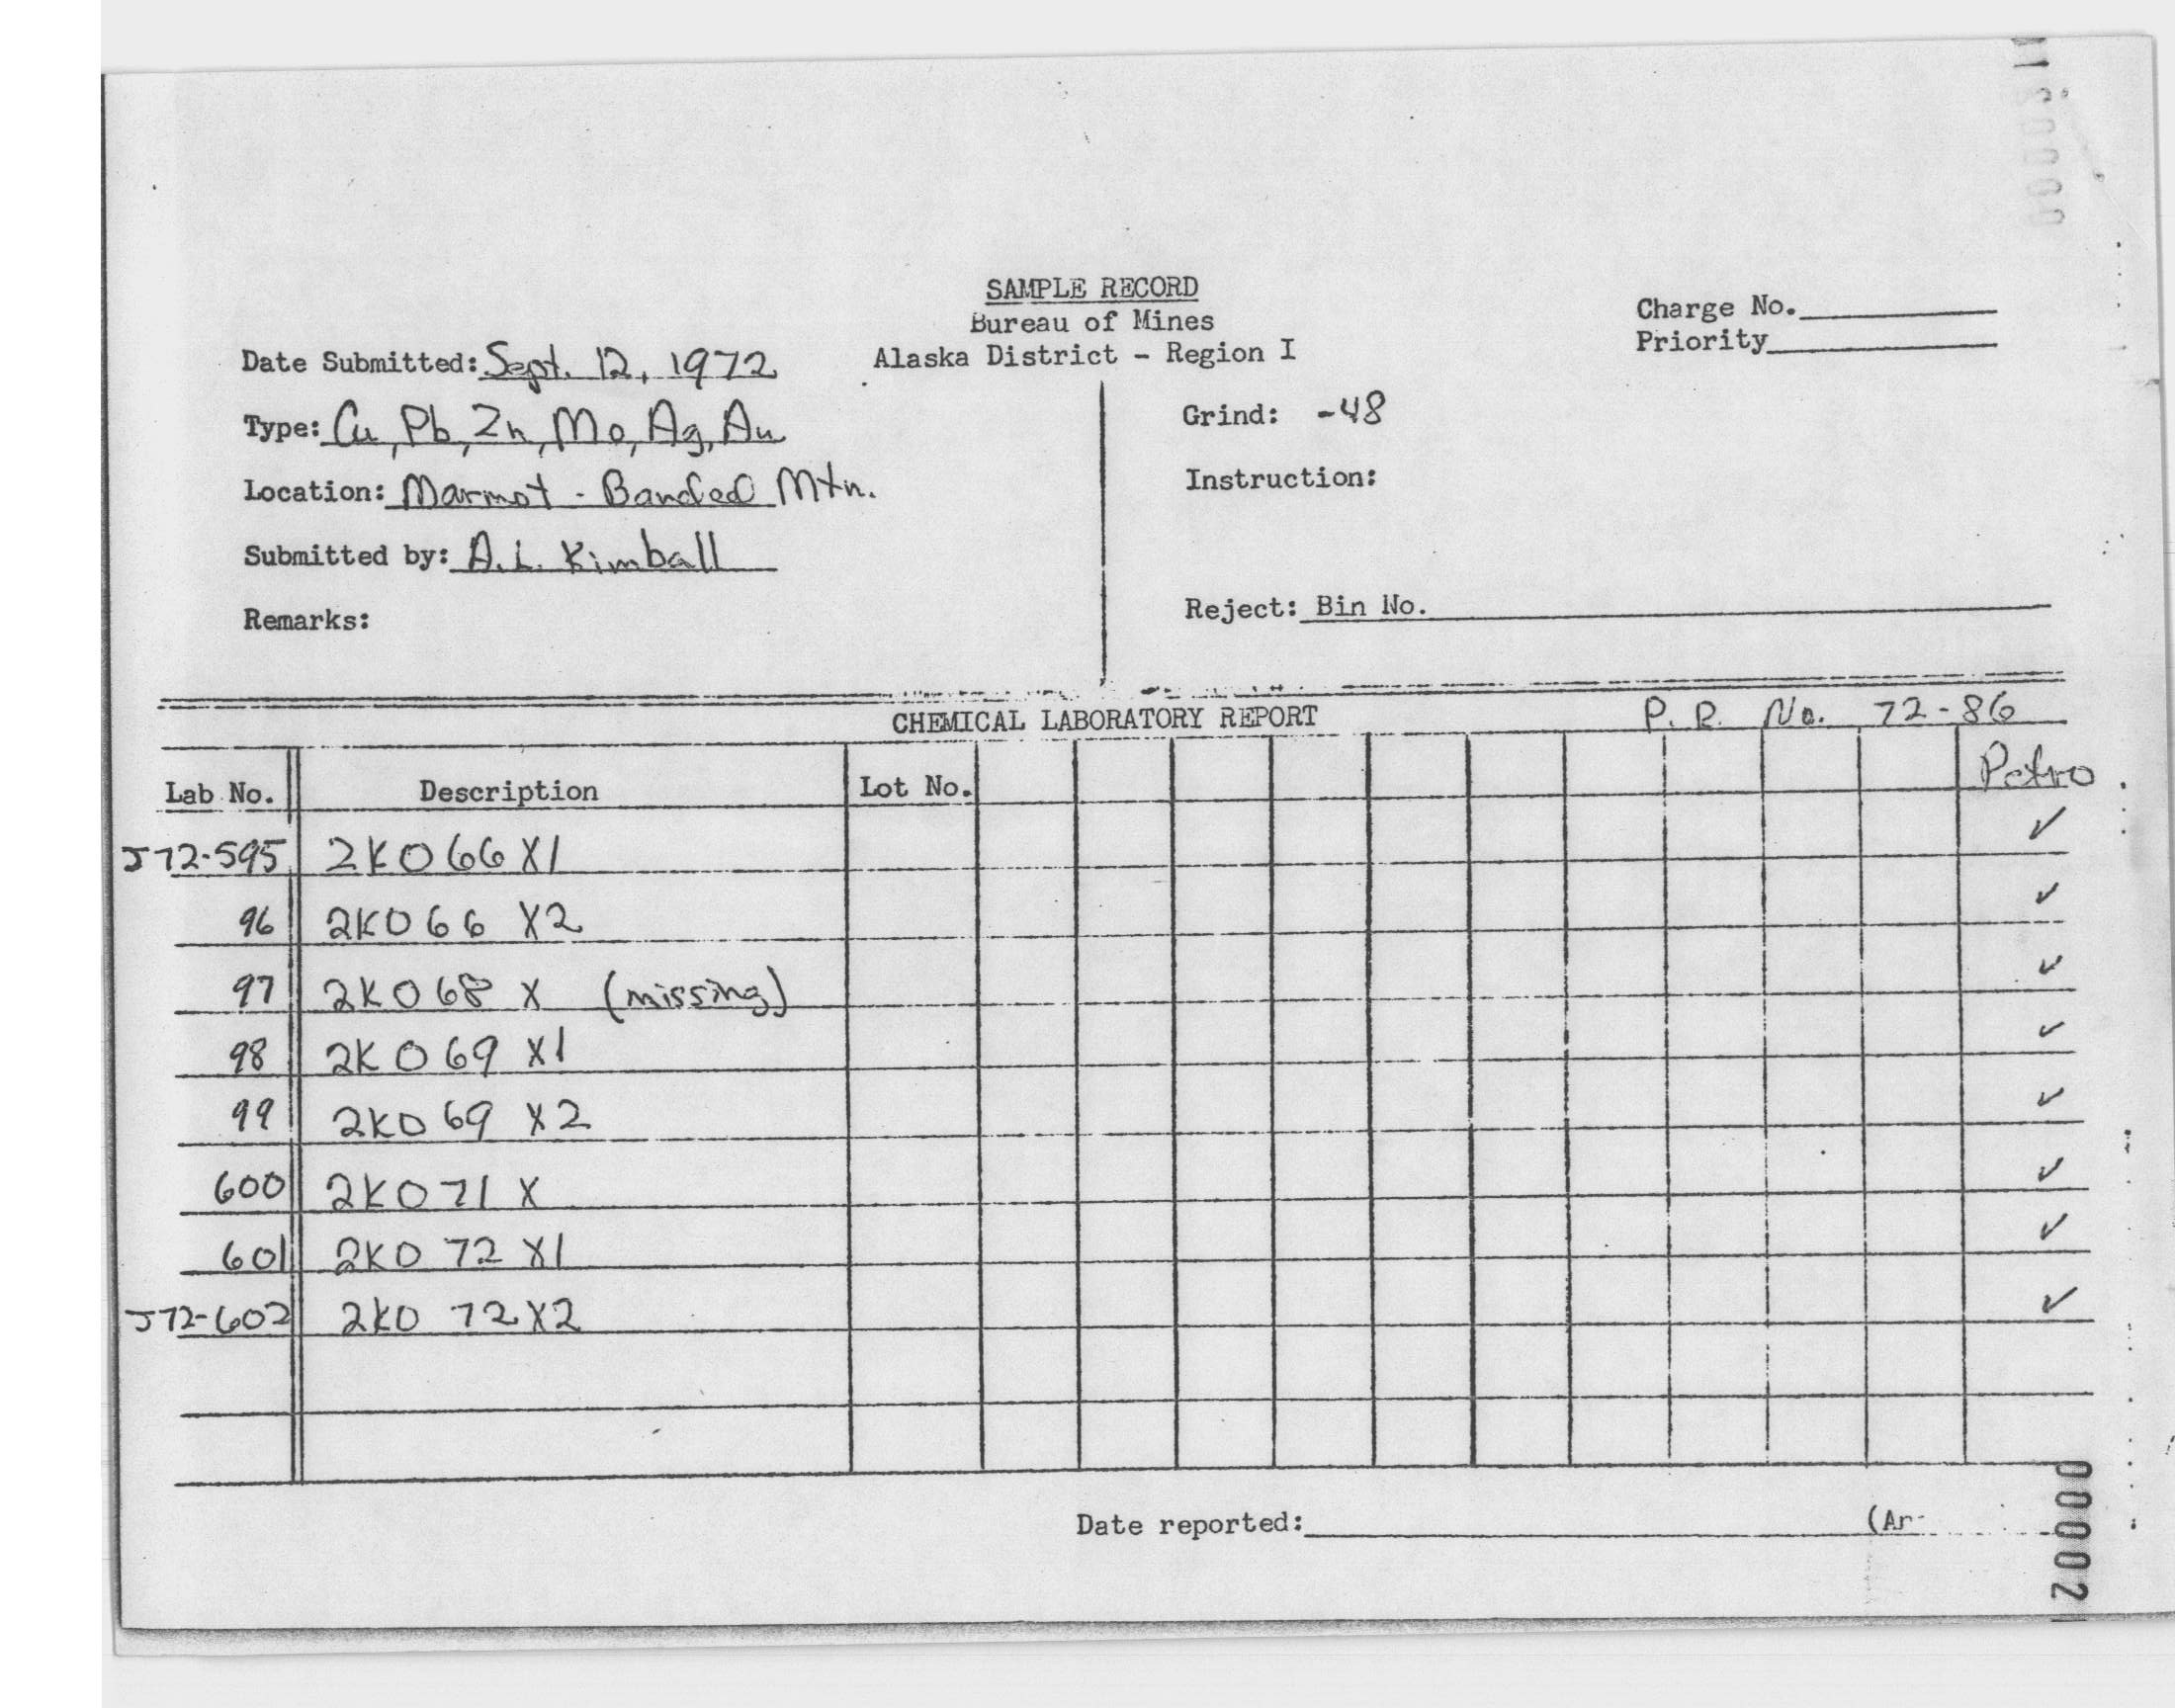 SAMPLE RECORD
Bureau of Mines
Alaska District - Region I
Charge No.
Priority
Date Submitted: Sept. 12, 1972
Type: Cu, Pb, Zn, Mo, Ag, Au
Location: Marmot - Banded Mtn.
Submitted by: A.L. Kimball
Remarks:
Grind: -48
Instruction:
Reject: Bin No.
CHEMICAL LABORATORY REPORT P. R. No. 72-86
Lab No. Description Lot No. Petro.
J72-595 2K066X1 ✓
96 2K066 X2 ✓
97 2K068 X (missing) ✓
98 2K069 X1 ✓
99 2K069 X2 ✓
600 2K071 X ✓
601 2K072 X1 ✓
J72-602 2K072X2 ✓
Date reported: (Ar
00002